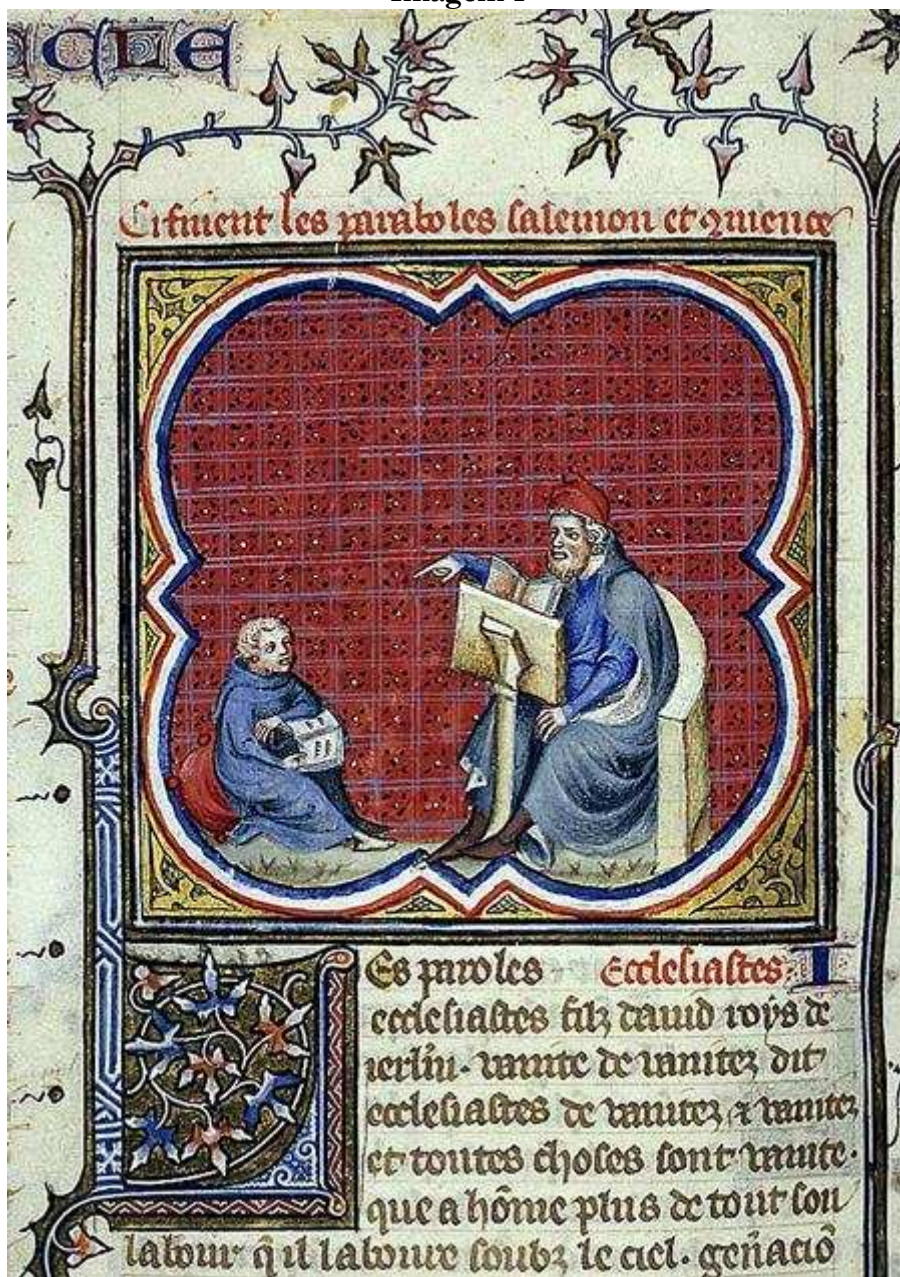 Imagem 1
acle
Cifinent les paraboles salemon et ꝯmence
Les paroles Ecclesiastes. I
ecclesiastes filz dauid roys de
ierl̄m. vanite de vanitez dit
ecclesiastes de vanitez ⁊ vanitez
et toutes choses sont vanite.
que a hōme plus de tout son
labour q̄ il laboure soubz le ciel. gen̄aciō